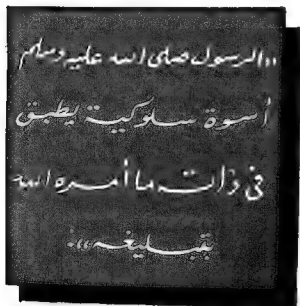 «الرسول صلى الله عليه وسلم
أسوة سلوكية يطبق
في ذاته ما أمره الله
بتبليغه».